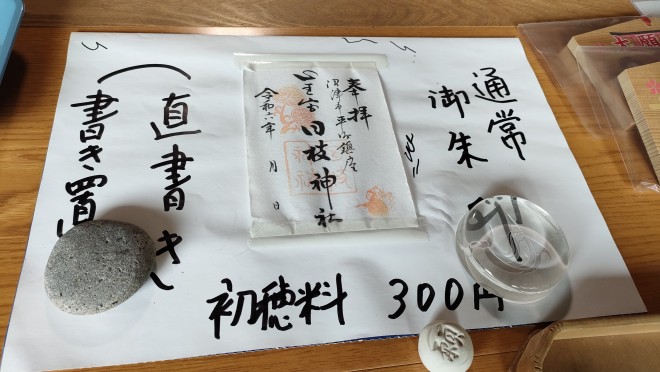 通常
御朱印
奉拝
沼津市平町鎮座
日枝神社
令和六年 月 日
（直書き
書き置
初穂料 300円